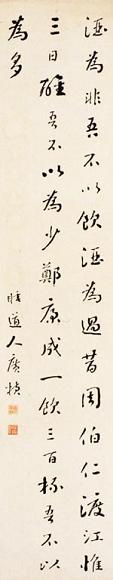 酒為非吾不以飲酒為過昔周伯仁渡江惟
三日醒吾不以為少鄭康成一飲三百杯吾不以
為多
道人